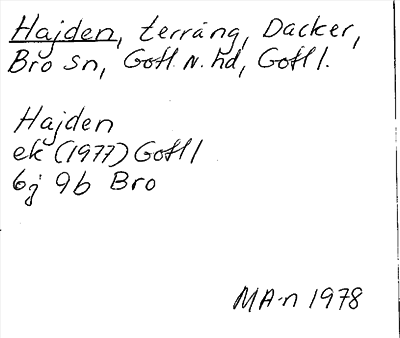 Hajden, terräng, Dacker,
Bro sn, Gotl. N. hd, Gotl l.
Hajden
ek (1977) Gotl l
6j 9b Bro
MA-n 1978